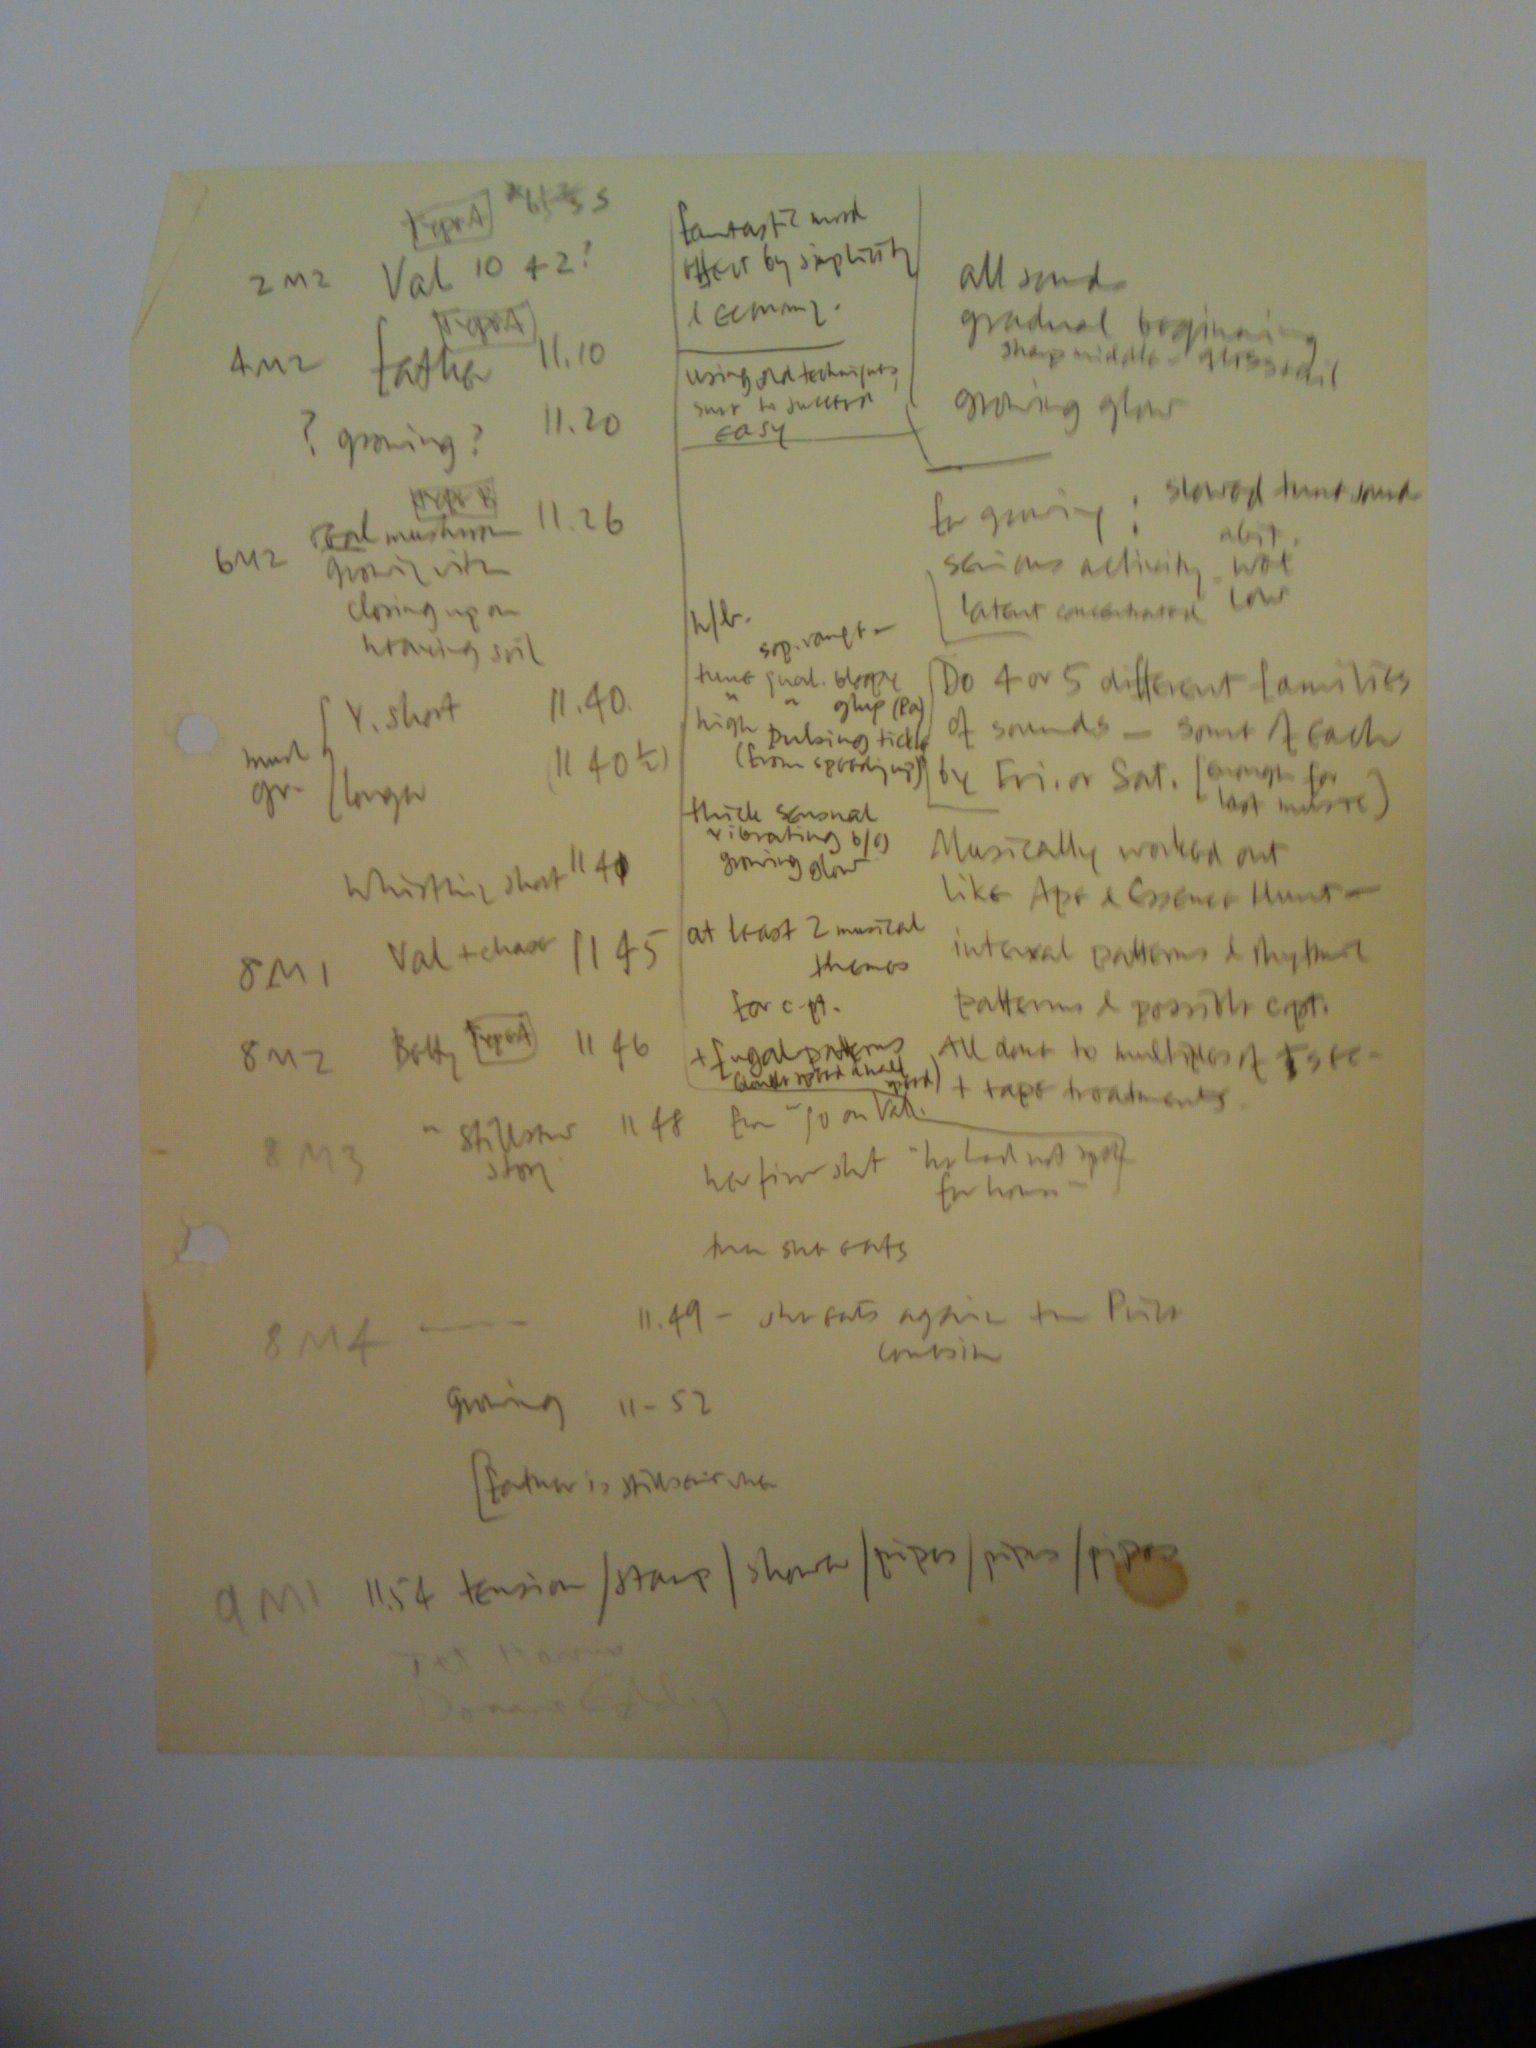 Type A
2M2 Val 10 42?
Type A
4M2 father 11.10
? growing? 11.20
Type B
6M2 real mushroom 11.26
growing with
closing up on
heaving soil
V. short 11.40.
longer (11 40½)
gr.
Whistling short 11 41
8M1 Val + chase 11 45
8M2 Betty Type A 11 46
8M3 " still star 11 48
story
8M4 —— 11.49 – she eats again
Growing 11-52
[father is still
9M1 11.54 tension/stamp/shower/pipes/pipes/pipes
fantastic mood
effect by simplicity
& economy.
using old techniques,
sure to succeed
easy
h/b.
sep. range
tune qual. bleepy
" " glup (Pa)
high pulsing tickle
(from speeding up)
thick sensual
vibrating b/g
growing glow
at least 2 musical
themes
for c-pt.
+ fugal patterns
(double speed & half
speed)
from 90 on Val.
her first shot "he had not spok
for hours"
then she eats
all sounds
gradual beginning
sharp middle - gliss tail
growing glow
for growing : slowed tune sound
serious activity
latent concentrated low
Do 4 or 5 different families
of sounds – some of each
by Fri. or Sat. (enough for
last music)
Musically worked out
like Ape & Essence Hunt –
interval patterns & rhythmic
patterns & possible cpt.
All done to multiples of sec –
+ tape treatments.